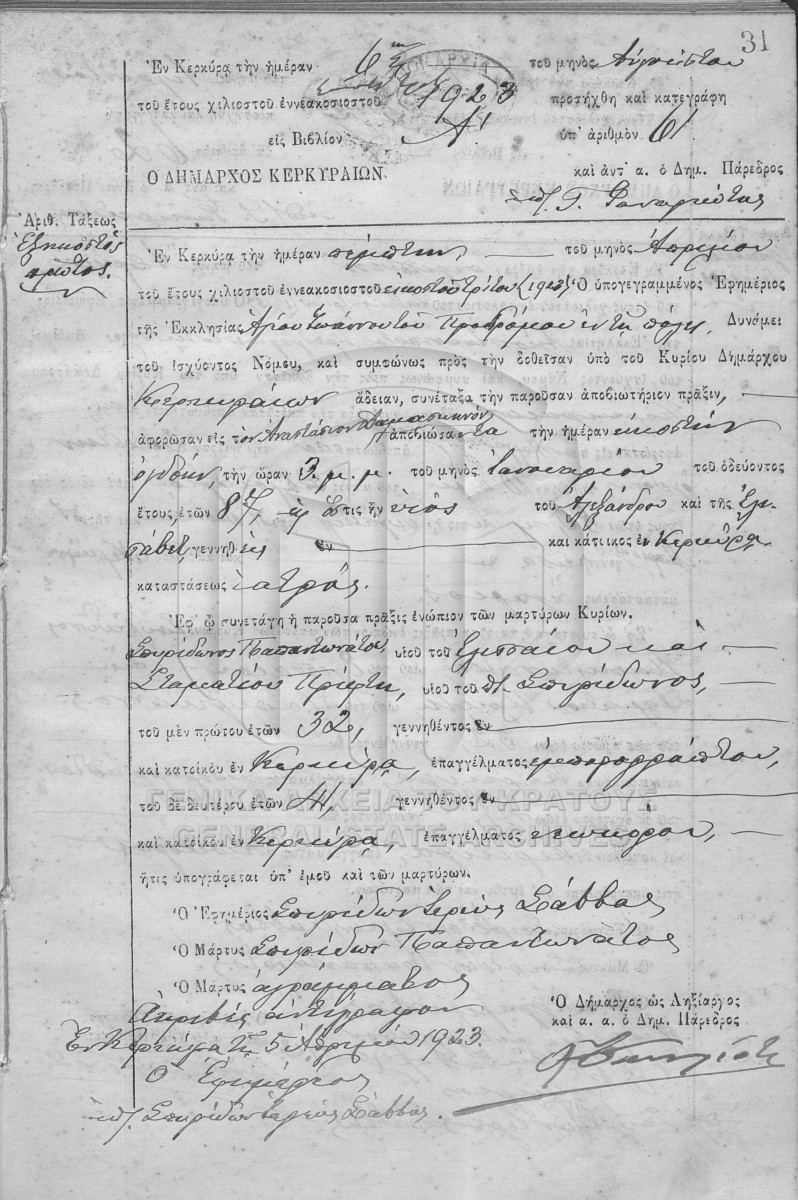 31
Ἐν Κερκύρᾳ τὴν ἡμέραν 6ην τοῦ μηνὸς Αὐγούστου
τοῦ ἔτους χιλιοστοῦ ἐννεακοσιοστοῦ 1923 προσήχθη καὶ κατεγράφη
εἰς Βιβλίον Α' ὑπ' ἀριθμὸν 61
Ο ΔΗΜΑΡΧΟΣ ΚΕΡΚΥΡΑΙΩΝ. καὶ ἀντ' α. ὁ Δημ. Πάρεδρος
Γ. Φαναριώτας
Ἀριθ. Τάξεως
Ἑξηκοστὸς
πρῶτος.
Ἐν Κερκύρᾳ τὴν ἡμέραν πέμπτην, τοῦ μηνὸς Ἀπριλίου
τοῦ ἔτους χιλιοστοῦ ἐννεακοσιοστοῦ εἰκοστοῦ τρίτου (1923) Ὁ ὑπογεγραμμένος Ἐφημέριος
τῆς Ἐκκλησίας Ἁγίου Ἰωάννου τοῦ Προδρόμου ἐν τῇ πόλει, Δυνάμει
τοῦ ἰσχύοντος Νόμου, καὶ συμφώνως πρὸς τὴν δοθεῖσαν ὑπὸ τοῦ Κυρίου Δημάρχου
Κερκυραίων ἄδειαν, συνέταξα τὴν παροῦσαν ἀποβιωτήριον πρᾶξιν,
ἀφορῶσαν εἰς τὸν Ἀναστάσιον Δαμασκηνὸν ἀποβιώσαντα τὴν ἡμέραν εἰκοστὴν
ὀγδόην, τὴν ὥραν 3. μ. μ. τοῦ μηνὸς Ἰανουαρίου τοῦ ὁδεύοντος
ἔτους, ἐτῶν 87, ὅστις ἦν υἱὸς τοῦ Ἀλεξάνδρου καὶ τῆς Ἐλι-
σάβετ, γεννηθεὶς ἐν καὶ κάτοικος ἐν Κερκύρᾳ,
καταστάσεως ἰατρός.
Ἐφ' ᾧ συνετάγη ἡ παροῦσα πρᾶξις ἐνώπιον τῶν μαρτύρων Κυρίων.
Σπυρίδωνος Παπαντωνάτος, υἱοῦ τοῦ καὶ
Σταματίου Πρίφτη, υἱοῦ τοῦ Σπυρίδωνος,
τοῦ μὲν πρώτου ἐτῶν 32, γεννηθέντος ἐν
καὶ κατοίκου ἐν Κερκύρᾳ, ἐπαγγέλματος ἐμπορορράπτου,
τοῦ δὲ δευτέρου ἐτῶν 41, γεννηθέντος ἐν
καὶ κατοίκου ἐν Κερκύρᾳ, ἐπαγγέλματος νεωκόρου,
ἥτις ὑπογράφεται ὑπ' ἐμοῦ καὶ τῶν μαρτύρων.
Ὁ Ἐφημέριος Σπυρίδων ἱερεὺς Σάββας
Ὁ Μάρτυς Σπυρίδων Παπαντωνάτος
Ὁ Μάρτυς ἀγράμματος
Ἀκριβὲς ἀντίγραφον
Ἐν Κερκύρᾳ τῇ 5 Ἀπριλίου 1923.
Ὁ Ἐφημέριος
Σπυρίδων ἱερεὺς Σάββας.
Ὁ Δήμαρχος ὡς Ληξίαρχος
καὶ α. α. ὁ Δημ. Πάρεδρος
ΓΕΝΙΚΑ ΑΡΧΕΙΑ ΤΟΥ ΚΡΑΤΟΥΣ
GENERAL STATE ARCHIVES